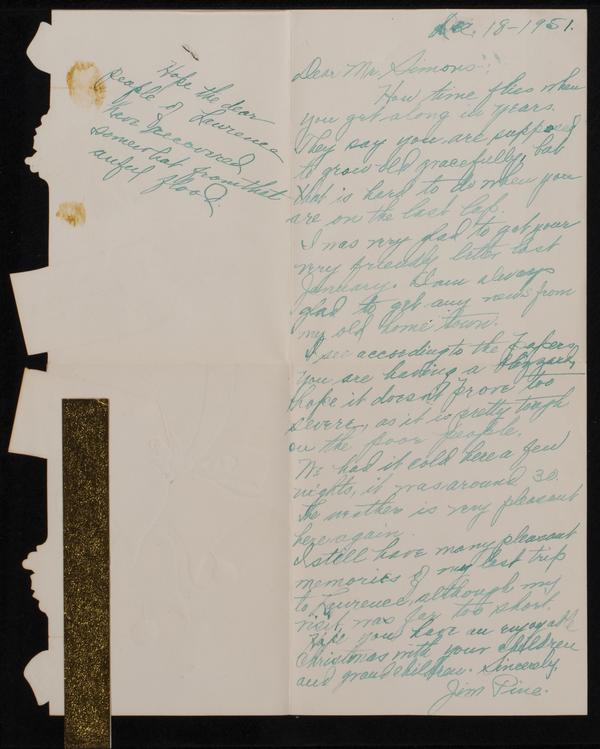 Dec. 18-1951.
Dear Mr. Simons:
How time flies when
you get along in years.
They say you are supposed
to grow old gracefully, but
that is hard to do when you
are on the last lap.
I was very glad to get your
very friendly letter last
January. Am always
glad to get any news from
my old home town.
I see according to the papers
you are having a blizzard,
hope it doesn't prove too
severe, as it is pretty tough
on the poor people.
We had it cold here a few
nights, it was around 30.
The weather is very pleasant
here again.
I still have many pleasant
memories of my last trip
to Lawrence, although my
visit was far too short.
Hope you have an enjoyable
Christmas with your children
and grand children. Sincerely,
Jim Pine.
Hope the dear
people of Lawrence
have recovered
somewhat from that
awful flood